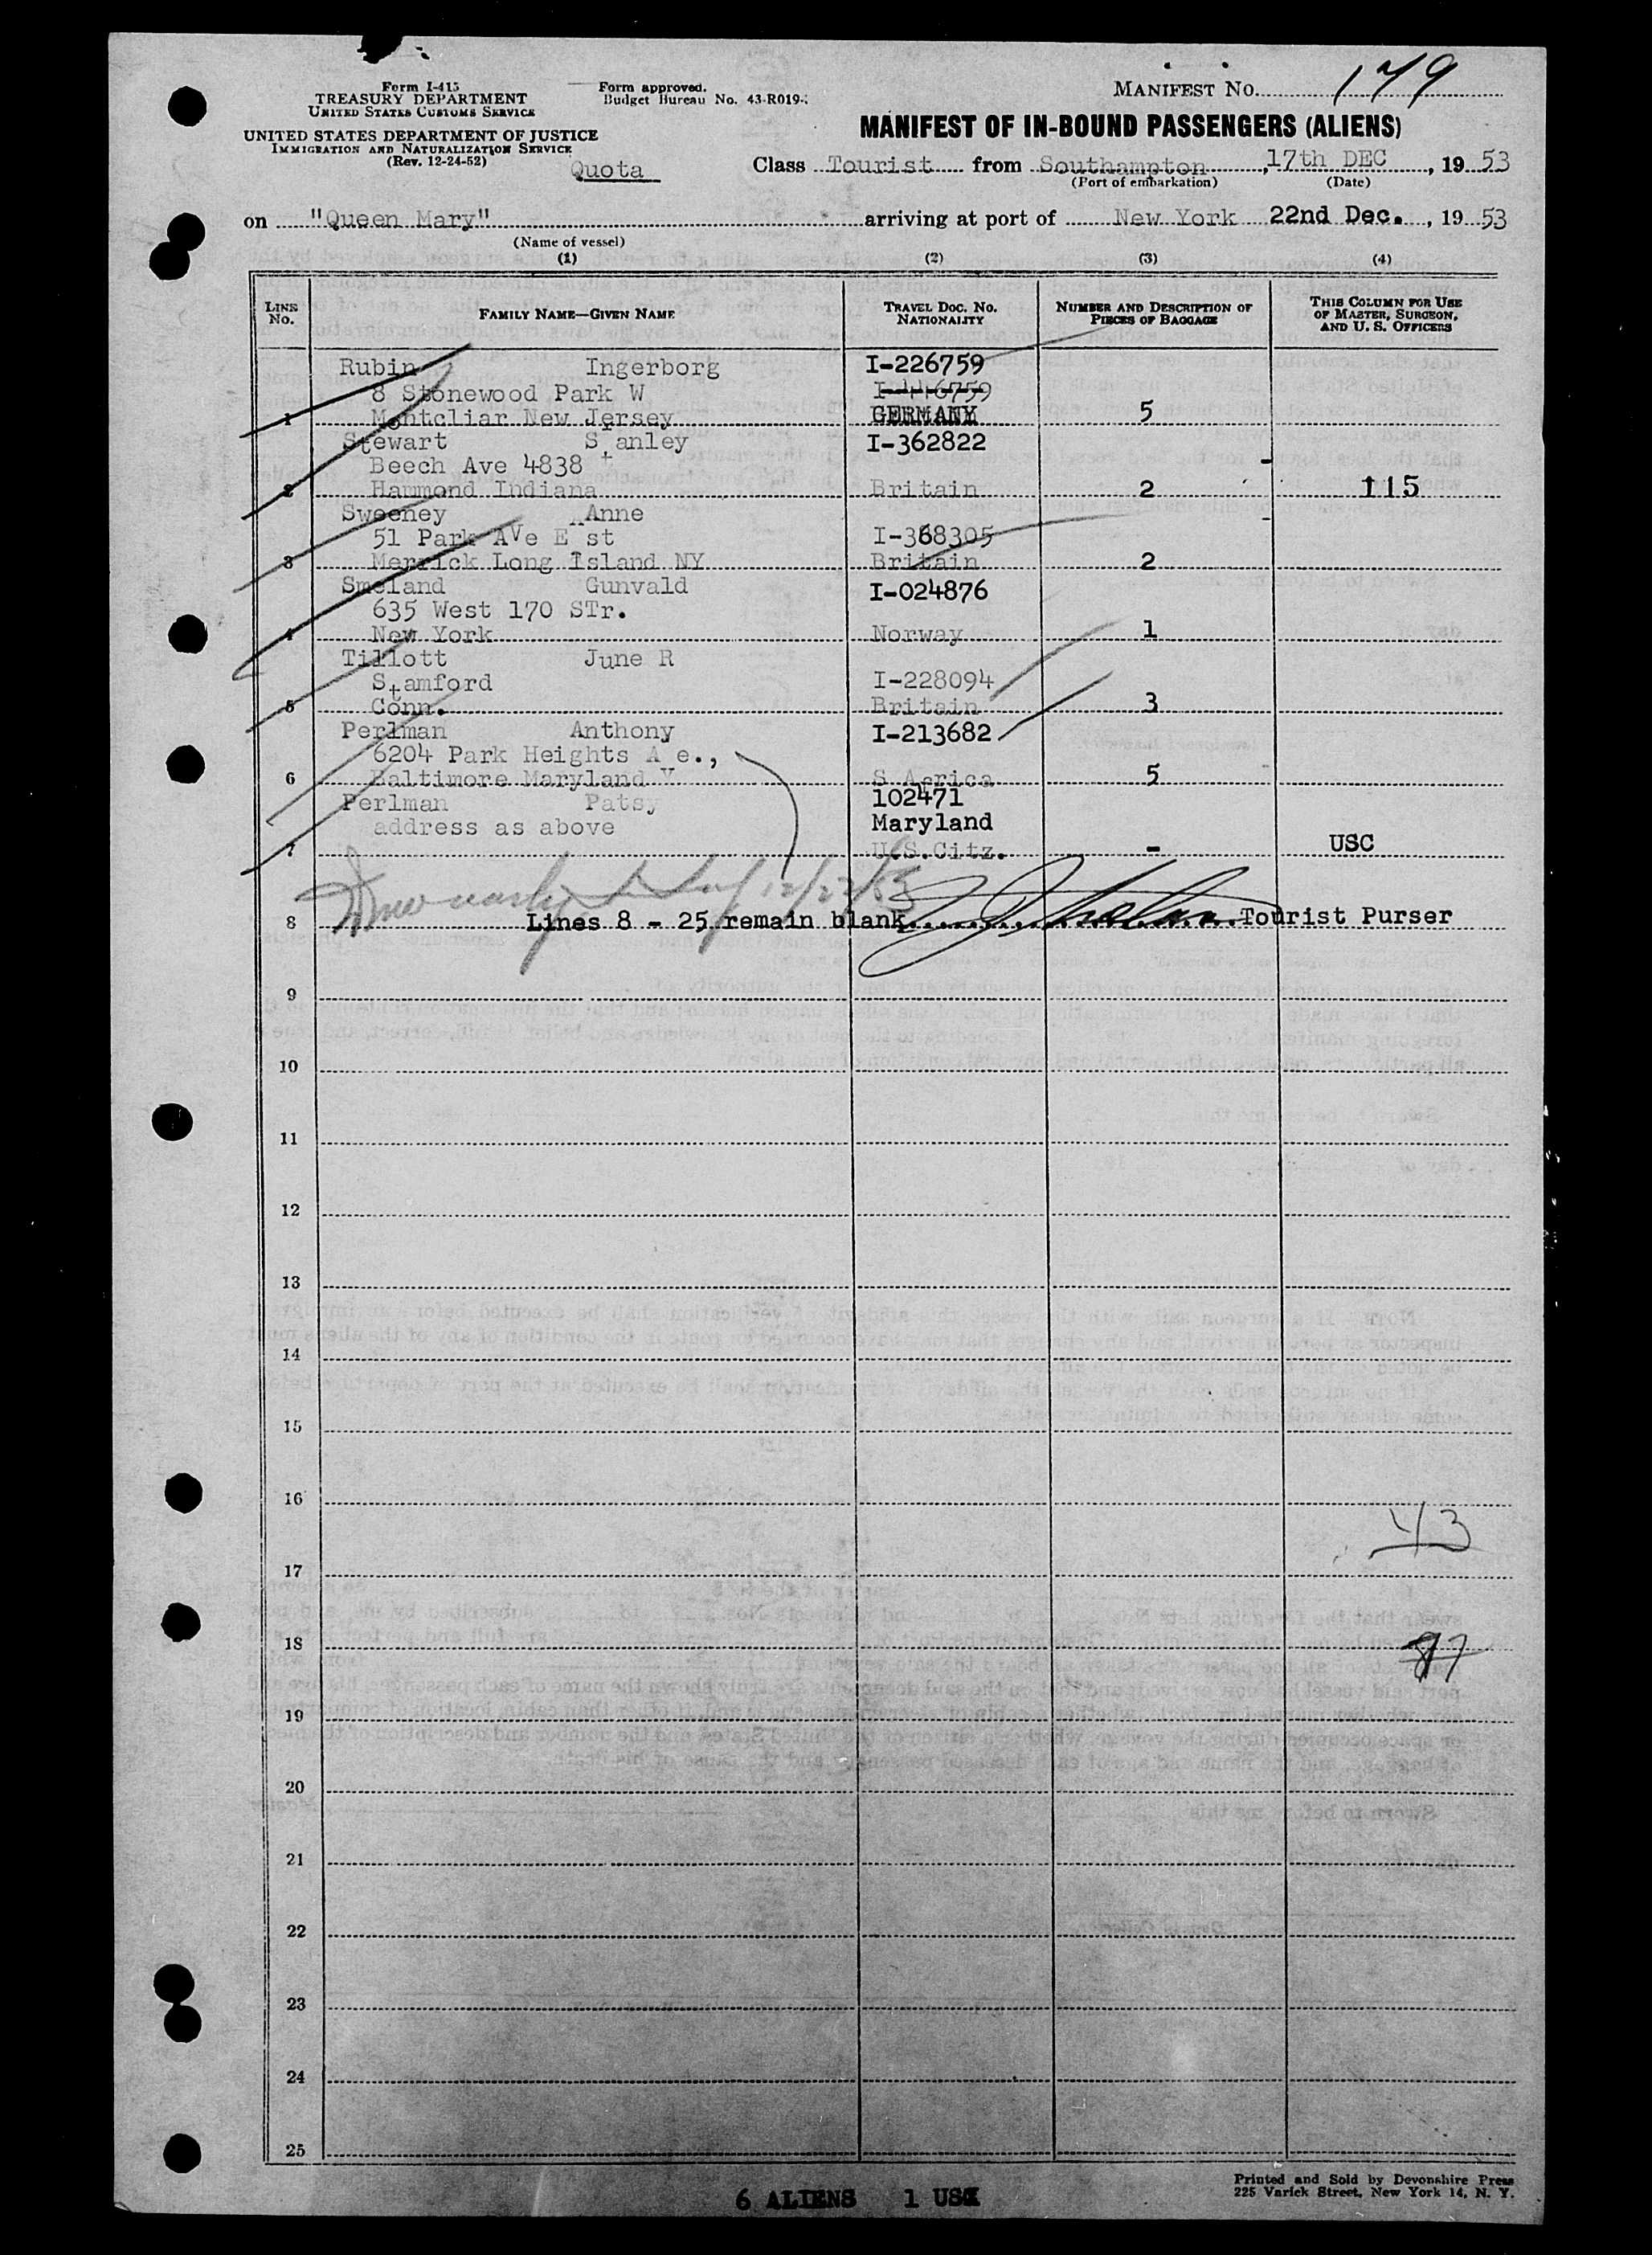 Form I-415
TREASURY DEPARTMENT
UNITED STATES CUSTOMS SERVICE
UNITED STATES DEPARTMENT OF JUSTICE
IMMIGRATION AND NATURALIZATION SERVICE
(Rev. 12-24-52)
Form approved.
Budget Bureau No. 43-R019-
MANIFEST NO. 179
MANIFEST OF IN-BOUND PASSENGERS (ALIENS)
Quota
Class Tourist from Southampton, 17th DEC, 19 53
(Port of embarkation) (Date)
on "Queen Mary" arriving at port of New York 22nd Dec., 19 53
(Name of vessel)
(1) (2) (3) (4)
LINE No. FAMILY NAME—GIVEN NAME TRAVEL DOC. NO. NATIONALITY NUMBER AND DESCRIPTION OF PIECES OF BAGGAGE THIS COLUMN FOR USE OF MASTER, SURGEON, AND U. S. OFFICERS
Rubin Ingerborg I-226759
8 Stonewood Park W I-446759
1 Montcliar New Jersey GERMANY 5
Stewart Stanley I-362822
Beech Ave 4838 -
2 Hammond Indiana Britain 2 115
Sweeney Anne -
51 Park AVe E st I-368305
3 Merrick Long Island NY Britain 2
Smeland Gunvald I-024876
635 West 170 STr.
4 New York Norway 1
Tillott June R
Stamford I-228094
5 Conn. Britain 3
Perlman Anthony I-213682
6204 Park Heights A e.,
6 Baltimore Maryland V S Africa 5
Perlman Patsy 102471
address as above Maryland
7 U.S.Citz. - USC
12/22/53
8 Lines 8 - 25 remain blank Tourist Purser
9
10
11
12
13
14
15
16
43
17
18
19
20
21
22
23
24
25
Printed and Sold by Devonshire Press
225 Varick Street, New York 14, N. Y.
6 ALIENS 1 USC